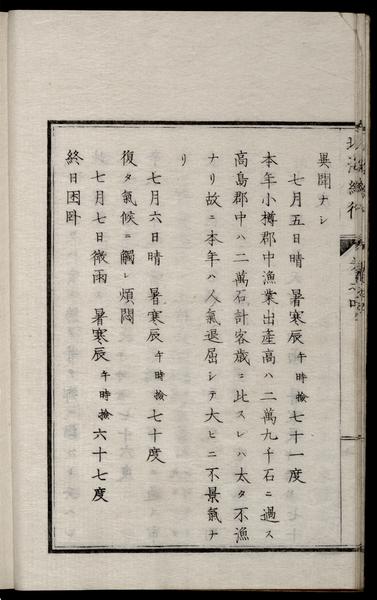 異聞ナシ
七月五日晴 暑寒辰午時撿七十一度
本年小樽郡中漁業出產高ハ二萬九千石ニ過ス
高島郡中ハ二萬石計客歳ニ比スレハ太タ不漁
ナリ故ニ本年ハ人氣退屈シテ大ヒニ不景氣ナ
リ
七月六日晴 暑寒辰午時撿七十度
復タ氣候ニ觸レ煩悶
七月七日微雨 暑寒辰午時撿六十七度
終日困臥